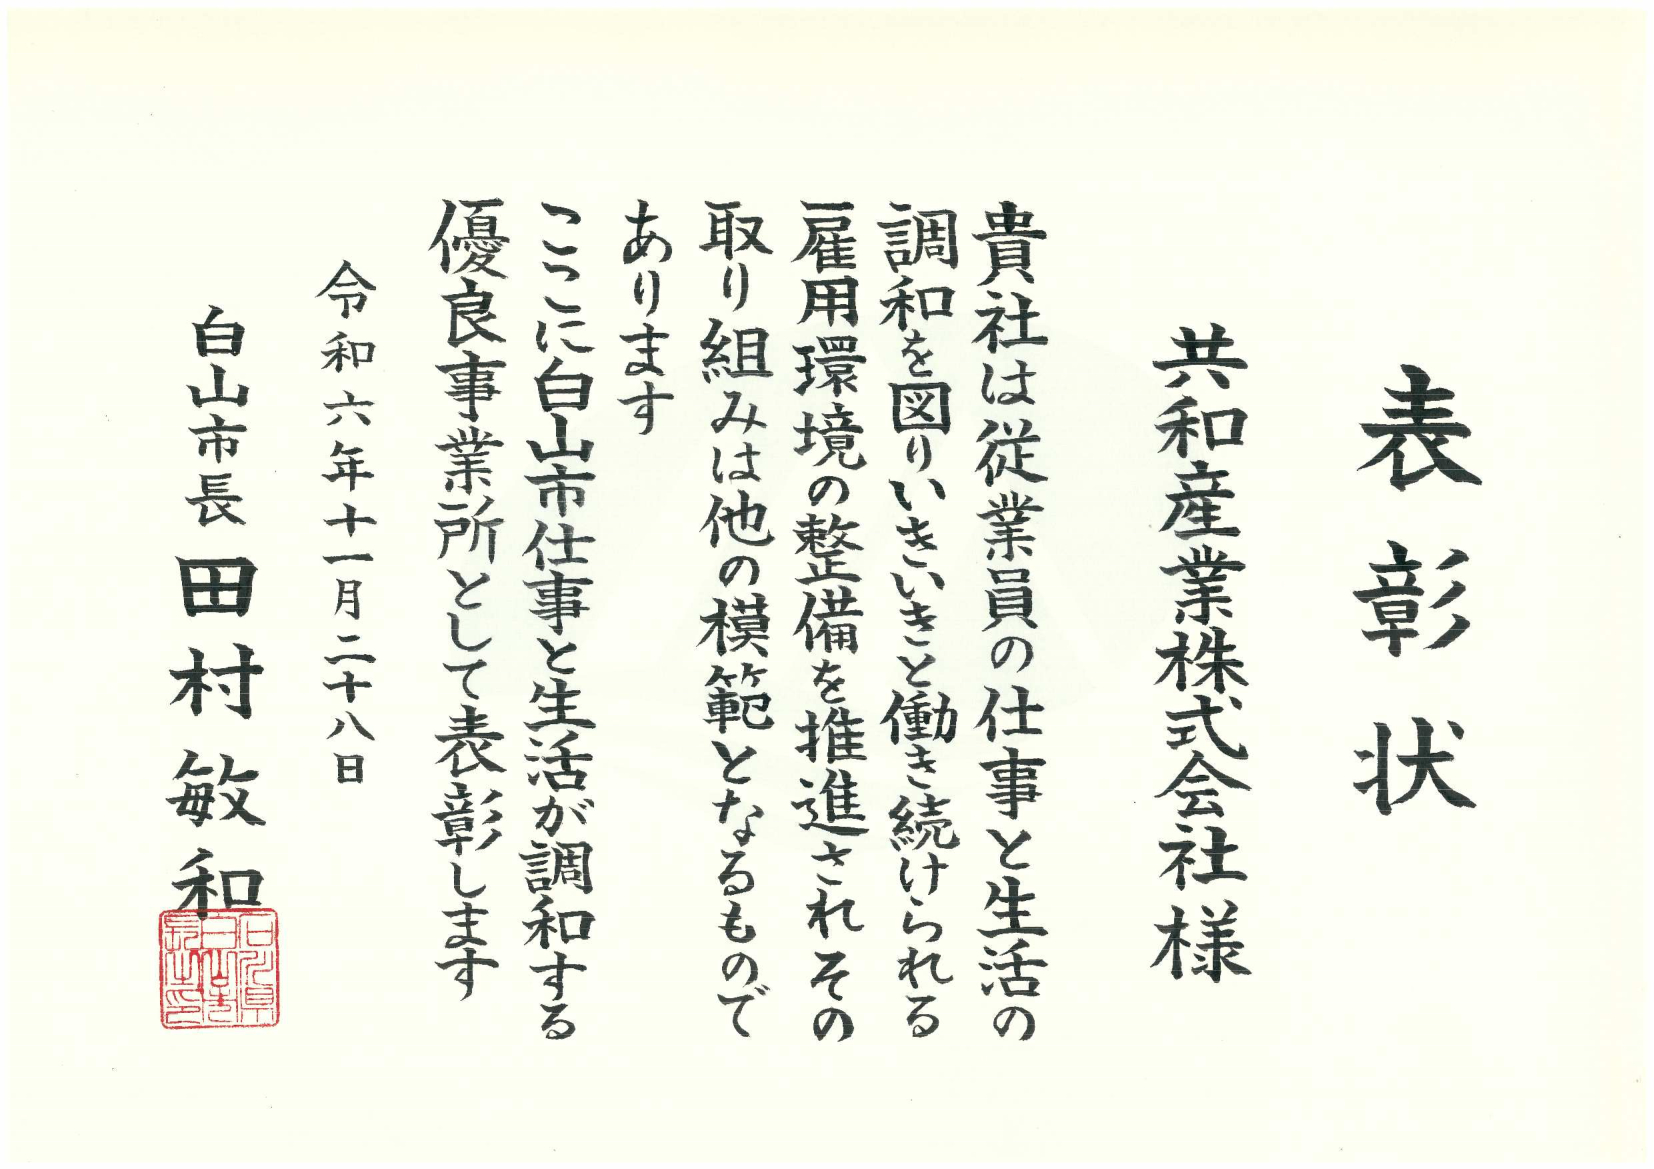 表彰状
共和産業株式会社様
貴社は従業員の仕事と生活の
調和を図りいきいきと働き続けられる
雇用環境の整備を推進されその
取り組みは他の模範となるもので
あります
ここに白山市仕事と生活が調和する
優良事業所として表彰します
令和六年十一月二十八日
白山市長 田村敏和
石川県
白山市
長之印